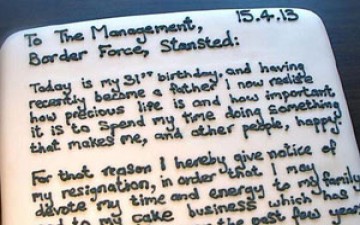 15.4.13
To The Management,
Border Force, Stansted:
Today is my 31st birthday, and having
recently become a father I now realise
how precious life is and how important
it is to spend my time doing something
that makes me, and other people, happy
For that reason I hereby give notice of
my resignation, in order that I may
devote my time and energy to my family
and to my cake business which has
over the past few year